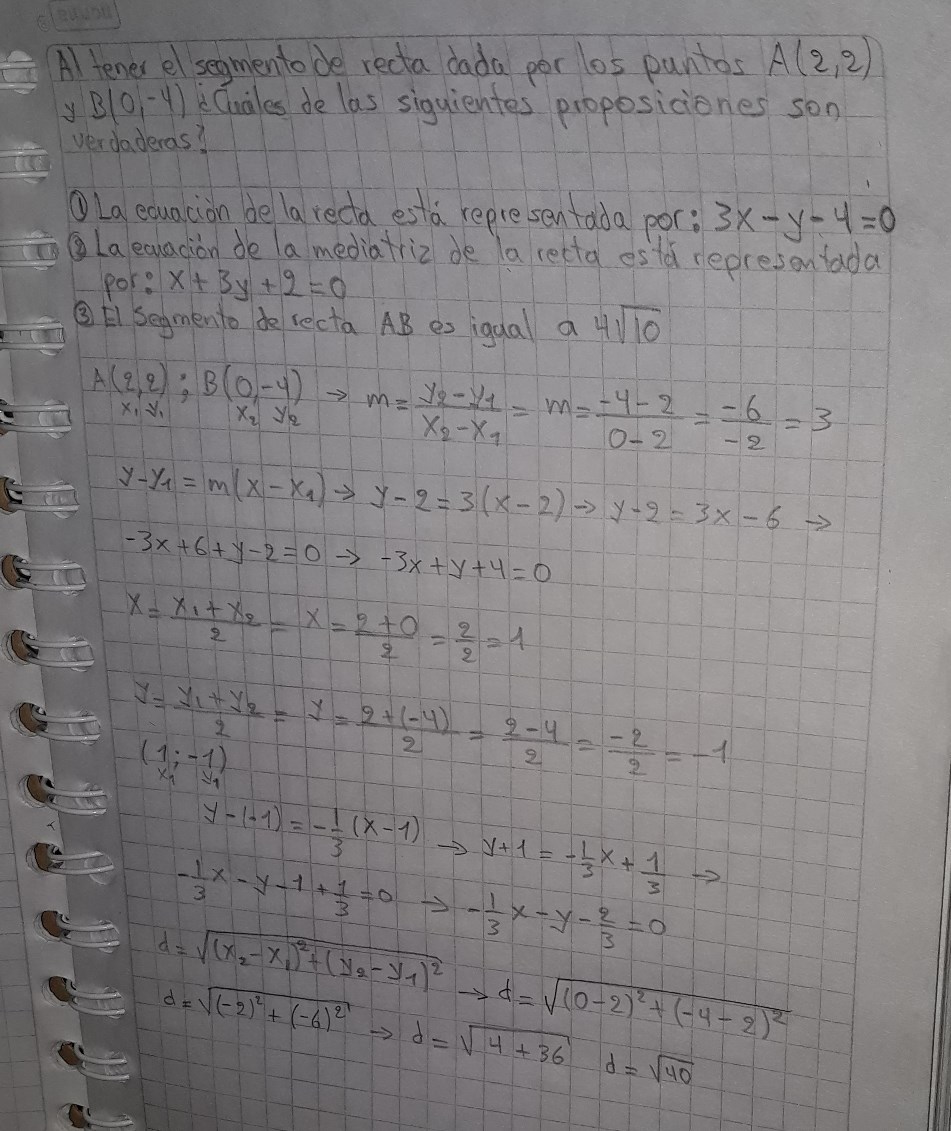 Al tener el segmento de recta dada por los puntos A(2,2)
y B(0,-4) ¿Cuáles de las siguientes proposiciones son
verdaderas?
① La ecuación de la recta está representada por: 3x-y-4=0
② La ecuación de la mediatriz de la recta está representada
por: x+3y+2=0
③ El segmento de recta AB es igual a 4√10
A(2,2) ; B(0,-4) → m = (y₂-y₁)/(x₂-x₁) = m = (-4-2)/(0-2) = -6/-2 = 3
x₁ y₁ x₂ y₂
y-y₁ = m(x-x₁) → y-2 = 3(x-2) → y-2 = 3x-6 →
-3x+6+y-2=0 → -3x+y+4=0
x = (x₁+x₂)/2 = x = (2+0)/2 = 2/2 = 1
y = (y₁+y₂)/2 = y = (2+(-4))/2 = (2-4)/2 = -2/2 = -1
(1;-1)
x₁ y₁
y-(-1) = -1/3 (x-1) → y+1 = -1/3x + 1/3 →
-1/3x - y - 1 + 1/3 = 0 → -1/3x - y - 2/3 = 0
d = √((x₂-x₁)²+(y₂-y₁)²) → d = √((0-2)²+(-4-2)²)
d = √((-2)²+(-6)²) → d = √(4+36) d = √40